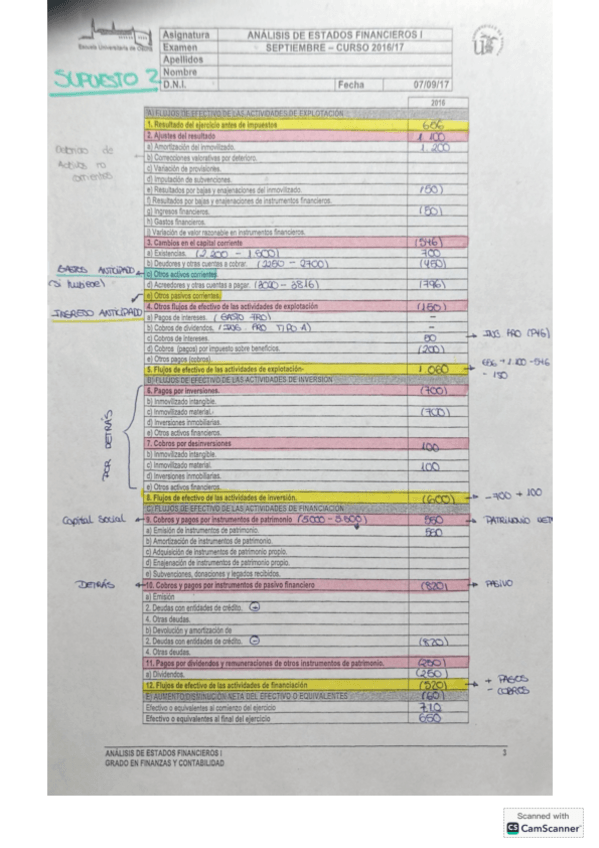 Escuela Universitaria de Osuna
Asignatura ANÁLISIS DE ESTADOS FINANCIEROS I
Examen SEPTIEMBRE – CURSO 2016/17
Apellidos
Nombre
D.N.I. Fecha 07/09/17
SUPUESTO 2
2016
A) FLUJOS DE EFECTIVO DE LAS ACTIVIDADES DE EXPLOTACIÓN
1. Resultado del ejercicio antes de impuestos 656
2. Ajustes del resultado 1.100
a) Amortización del inmovilizado. 1.200
b) Correcciones valorativas por deterioro.
c) Variación de provisiones.
d) Imputación de subvenciones.
e) Resultados por bajas y enajenaciones del inmovilizado. (50)
f) Resultados por bajas y enajenaciones de instrumentos financieros.
g) Ingresos financieros. (50)
h) Gastos financieros.
i) Variación de valor razonable en instrumentos financieros.
3. Cambios en el capital corriente (546)
a) Existencias. (2.200 - 1.500) 700
b) Deudores y otras cuentas a cobrar. (2250 - 2700) (450)
GASTOS ANTICIPADO
c) Otros activos corrientes.
(si hubiese)
d) Acreedores y otras cuentas a pagar. (3020 - 3816) (796)
e) Otros pasivos corrientes.
INGRESO ANTICIPADO
4. Otros flujos de efectivo de las actividades de explotación (150)
a) Pagos de intereses. (GASTO FRO) -
b) Cobros de dividendos. -
c) Cobros de intereses. 50
d) Cobros (pagos) por impuesto sobre beneficios. (200)
e) Otros pagos (cobros).
5. Flujos de efectivo de las actividades de explotación. 1.060
656 + 1.100 - 546
- 150
B) FLUJOS DE EFECTIVO DE LAS ACTIVIDADES DE INVERSIÓN
6. Pagos por inversiones. (700)
b) Inmovilizado intangible.
c) Inmovilizado material. (700)
d) Inversiones inmobiliarias.
e) Otros activos financieros.
POR DETRÁS
7. Cobros por desinversiones 100
b) Inmovilizado intangible.
c) Inmovilizado material. 100
d) Inversiones inmobiliarias.
e) Otros activos financieros.
8. Flujos de efectivo de las actividades de inversión. (600) -700 + 100
C) FLUJOS DE EFECTIVO DE LAS ACTIVIDADES DE FINANCIACIÓN
Capital Social 9. Cobros y pagos por instrumentos de patrimonio 550
a) Emisión de instrumentos de patrimonio. 550
b) Amortización de instrumentos de patrimonio.
c) Adquisición de instrumentos de patrimonio propio.
d) Enajenación de instrumentos de patrimonio propio.
e) Subvenciones, donaciones y legados recibidos.
DETRÁS 10. Cobros y pagos por instrumentos de pasivo financiero (820) PASIVO
a) Emisión
2. Deudas con entidades de crédito.
4. Otras deudas.
b) Devolución y amortización de
2. Deudas con entidades de crédito. (820)
4. Otras deudas.
11. Pagos por dividendos y remuneraciones de otros instrumentos de patrimonio. (250)
a) Dividendos. (250)
12. Flujos de efectivo de las actividades de financiación (520)
+ PAGOS
- COBROS
E) AUMENTO/DISMINUCIÓN NETA DEL EFECTIVO O EQUIVALENTES (60)
Efectivo o equivalentes al comienzo del ejercicio 710
Efectivo o equivalentes al final del ejercicio 650
ANÁLISIS DE ESTADOS FINANCIEROS I 3
GRADO EN FINANZAS Y CONTABILIDAD
Scanned with
CS CamScanner